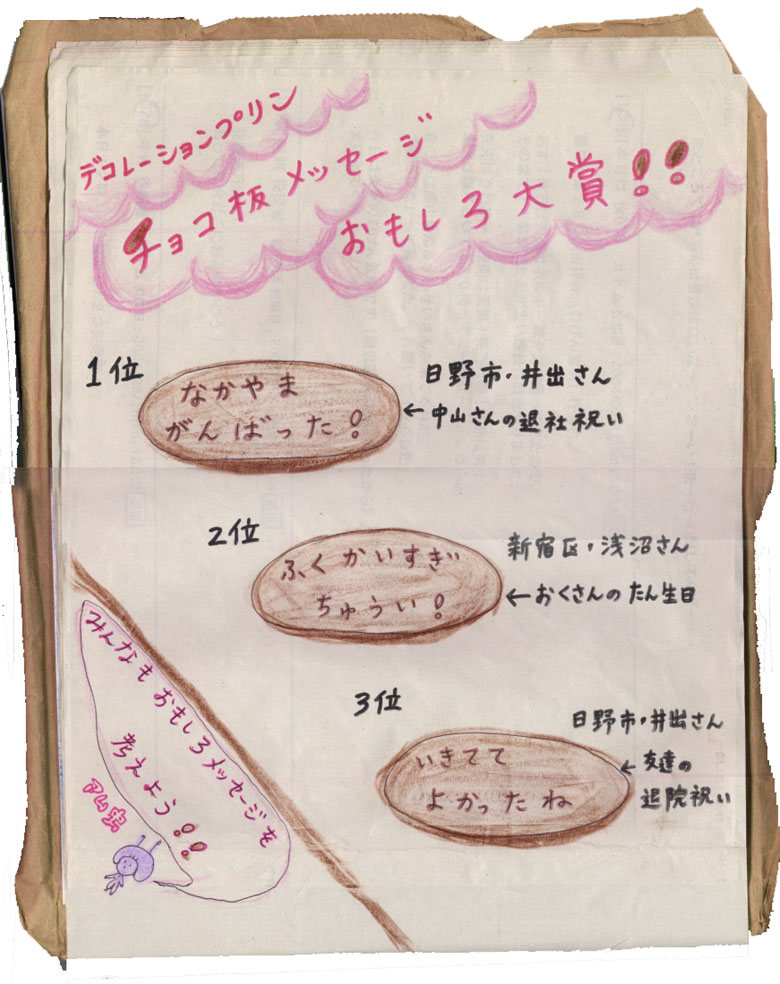 デコレーションプリン
チョコ板メッセージ
おもしろ大賞!!
1位
なかやま
がんばった!
日野市・井出さん
←中山さんの退社祝い
2位
ふくかいすぎ
ちゅうい!
新宿区・浅沼さん
←おくさんのたん生日
3位
いきてて
よかったね
日野市・井出さん
←友達の
退院祝い
みんなもおもしろメッセージを
考えよう!!